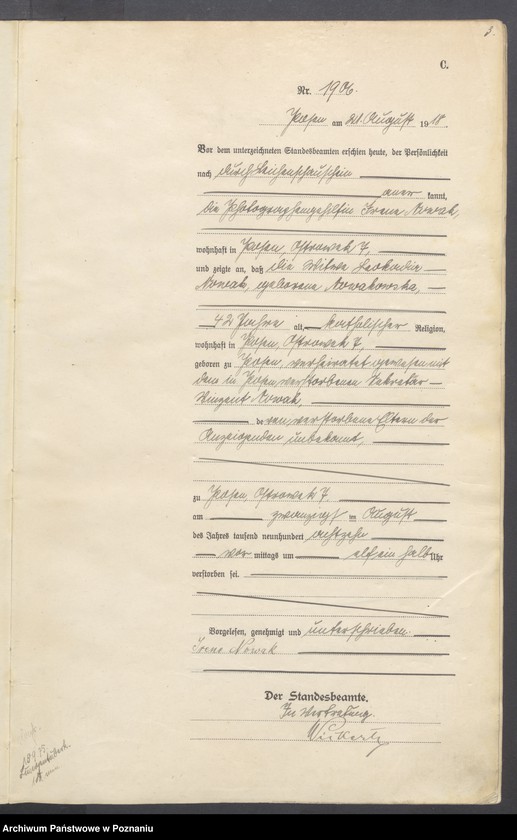 3.
C.
Nr. 1906.
Posen am 21. August 1918.
Vor dem unterzeichneten Standesbeamten erschien heute, der Persönlichkeit
nach durch Leichenschauschein
aner kannt,
die Photographengehilfin Irene Nowak,
wohnhaft in Posen, Ostrowek 7,
und zeigte an, daß die Witwe Leokadia
Nowak, geborene Nowakowska,
42 Jahre alt, katholischer Religion,
wohnhaft in Posen, Ostrowek 7,
geboren zu Posen, verheiratet gewesen mit
dem in Posen verstorbenen Sekretär
Vinzent Nowak,
de ren verstorbene Eltern der
Anzeigenden unbekannt,
zu Posen, Ostrowek 7,
am zwanzigsten August
des Jahres tausend neunhundert achtzehn
vor mittags um elfeinhalb Uhr
verstorben sei.
Vorgelesen, genehmigt und unterschrieben.
Irene Nowak
Der Standesbeamte.
In Vertretung.
Archiwum Państwowe w Poznaniu